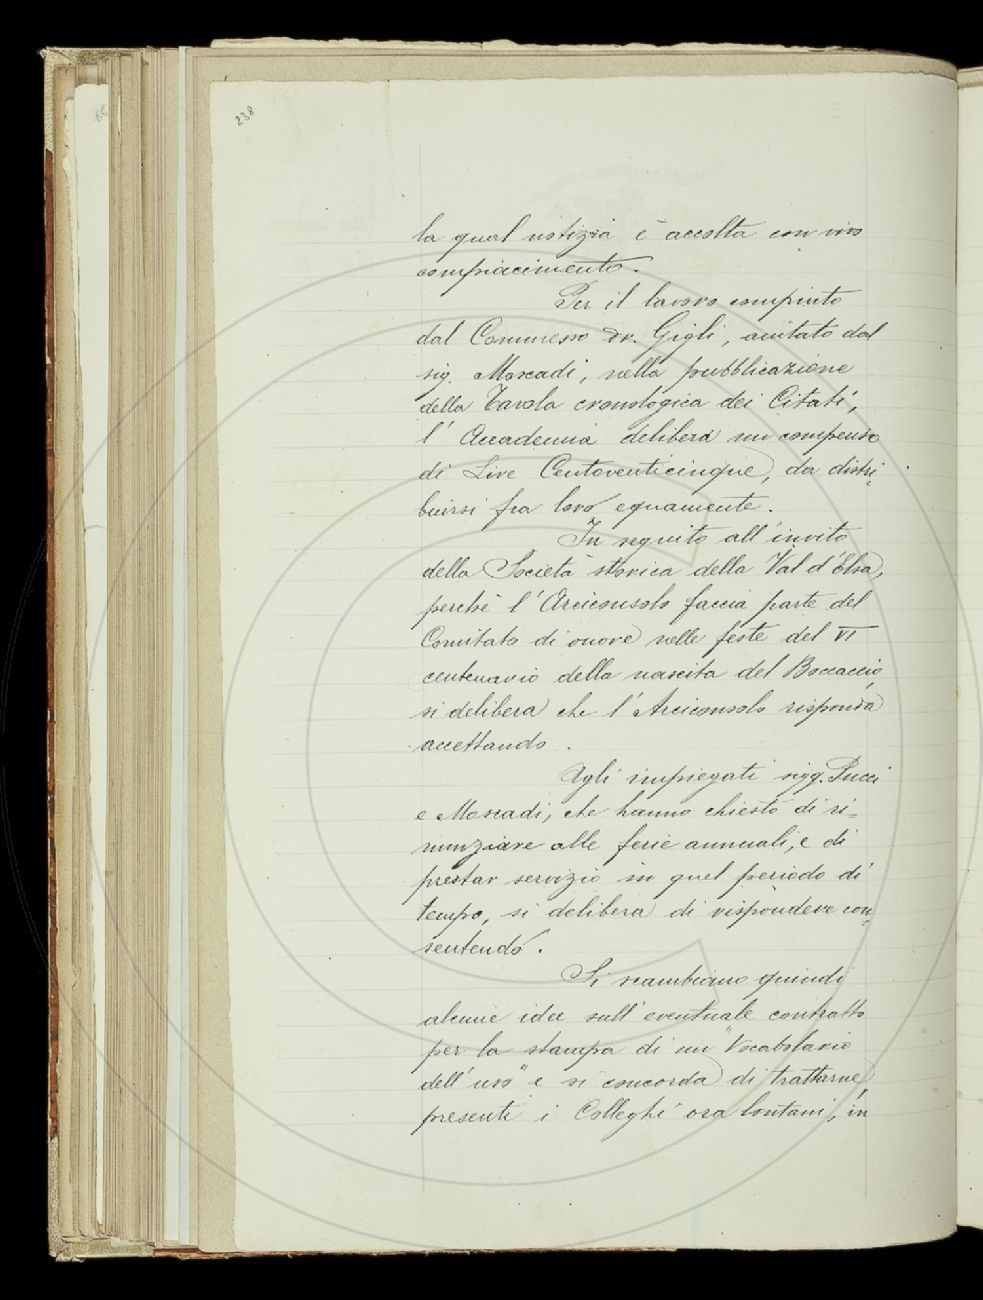 238
la qual notizia è accolta con vivo
compiacimento.
Per il lavoro compiuto
dal Commesso Dr. Gigli, aiutato dal
sig. Moscadi, nella pubblicazione
della Tavola cronologica dei Citati,
l'Accademia delibera un compenso
di Lire Centoventicinque, da distri=
buirsi fra loro equamente.
In seguito all'invito
della Società storica della Val d'Elsa,
perché l'Arciconsolo faccia parte del
Comitato di onore nelle feste del VI
centenario della nascita del Boccaccio,
si delibera che l'Arciconsolo risponda
accettando.
Agli impiegati sigg. Pucci
e Moscadi, che hanno chiesto di ri=
nunziare alle ferie annuali, e di
prestar servizio in quel periodo di
tempo, si delibera di rispondere con=
sentendo.
Si scambiano quindi
alcune idee sull'eventuale contratto
per la stampa di un "Vocabolario
dell'uso" e si concorda di trattarne,
presenti i Colleghi ora lontani, in